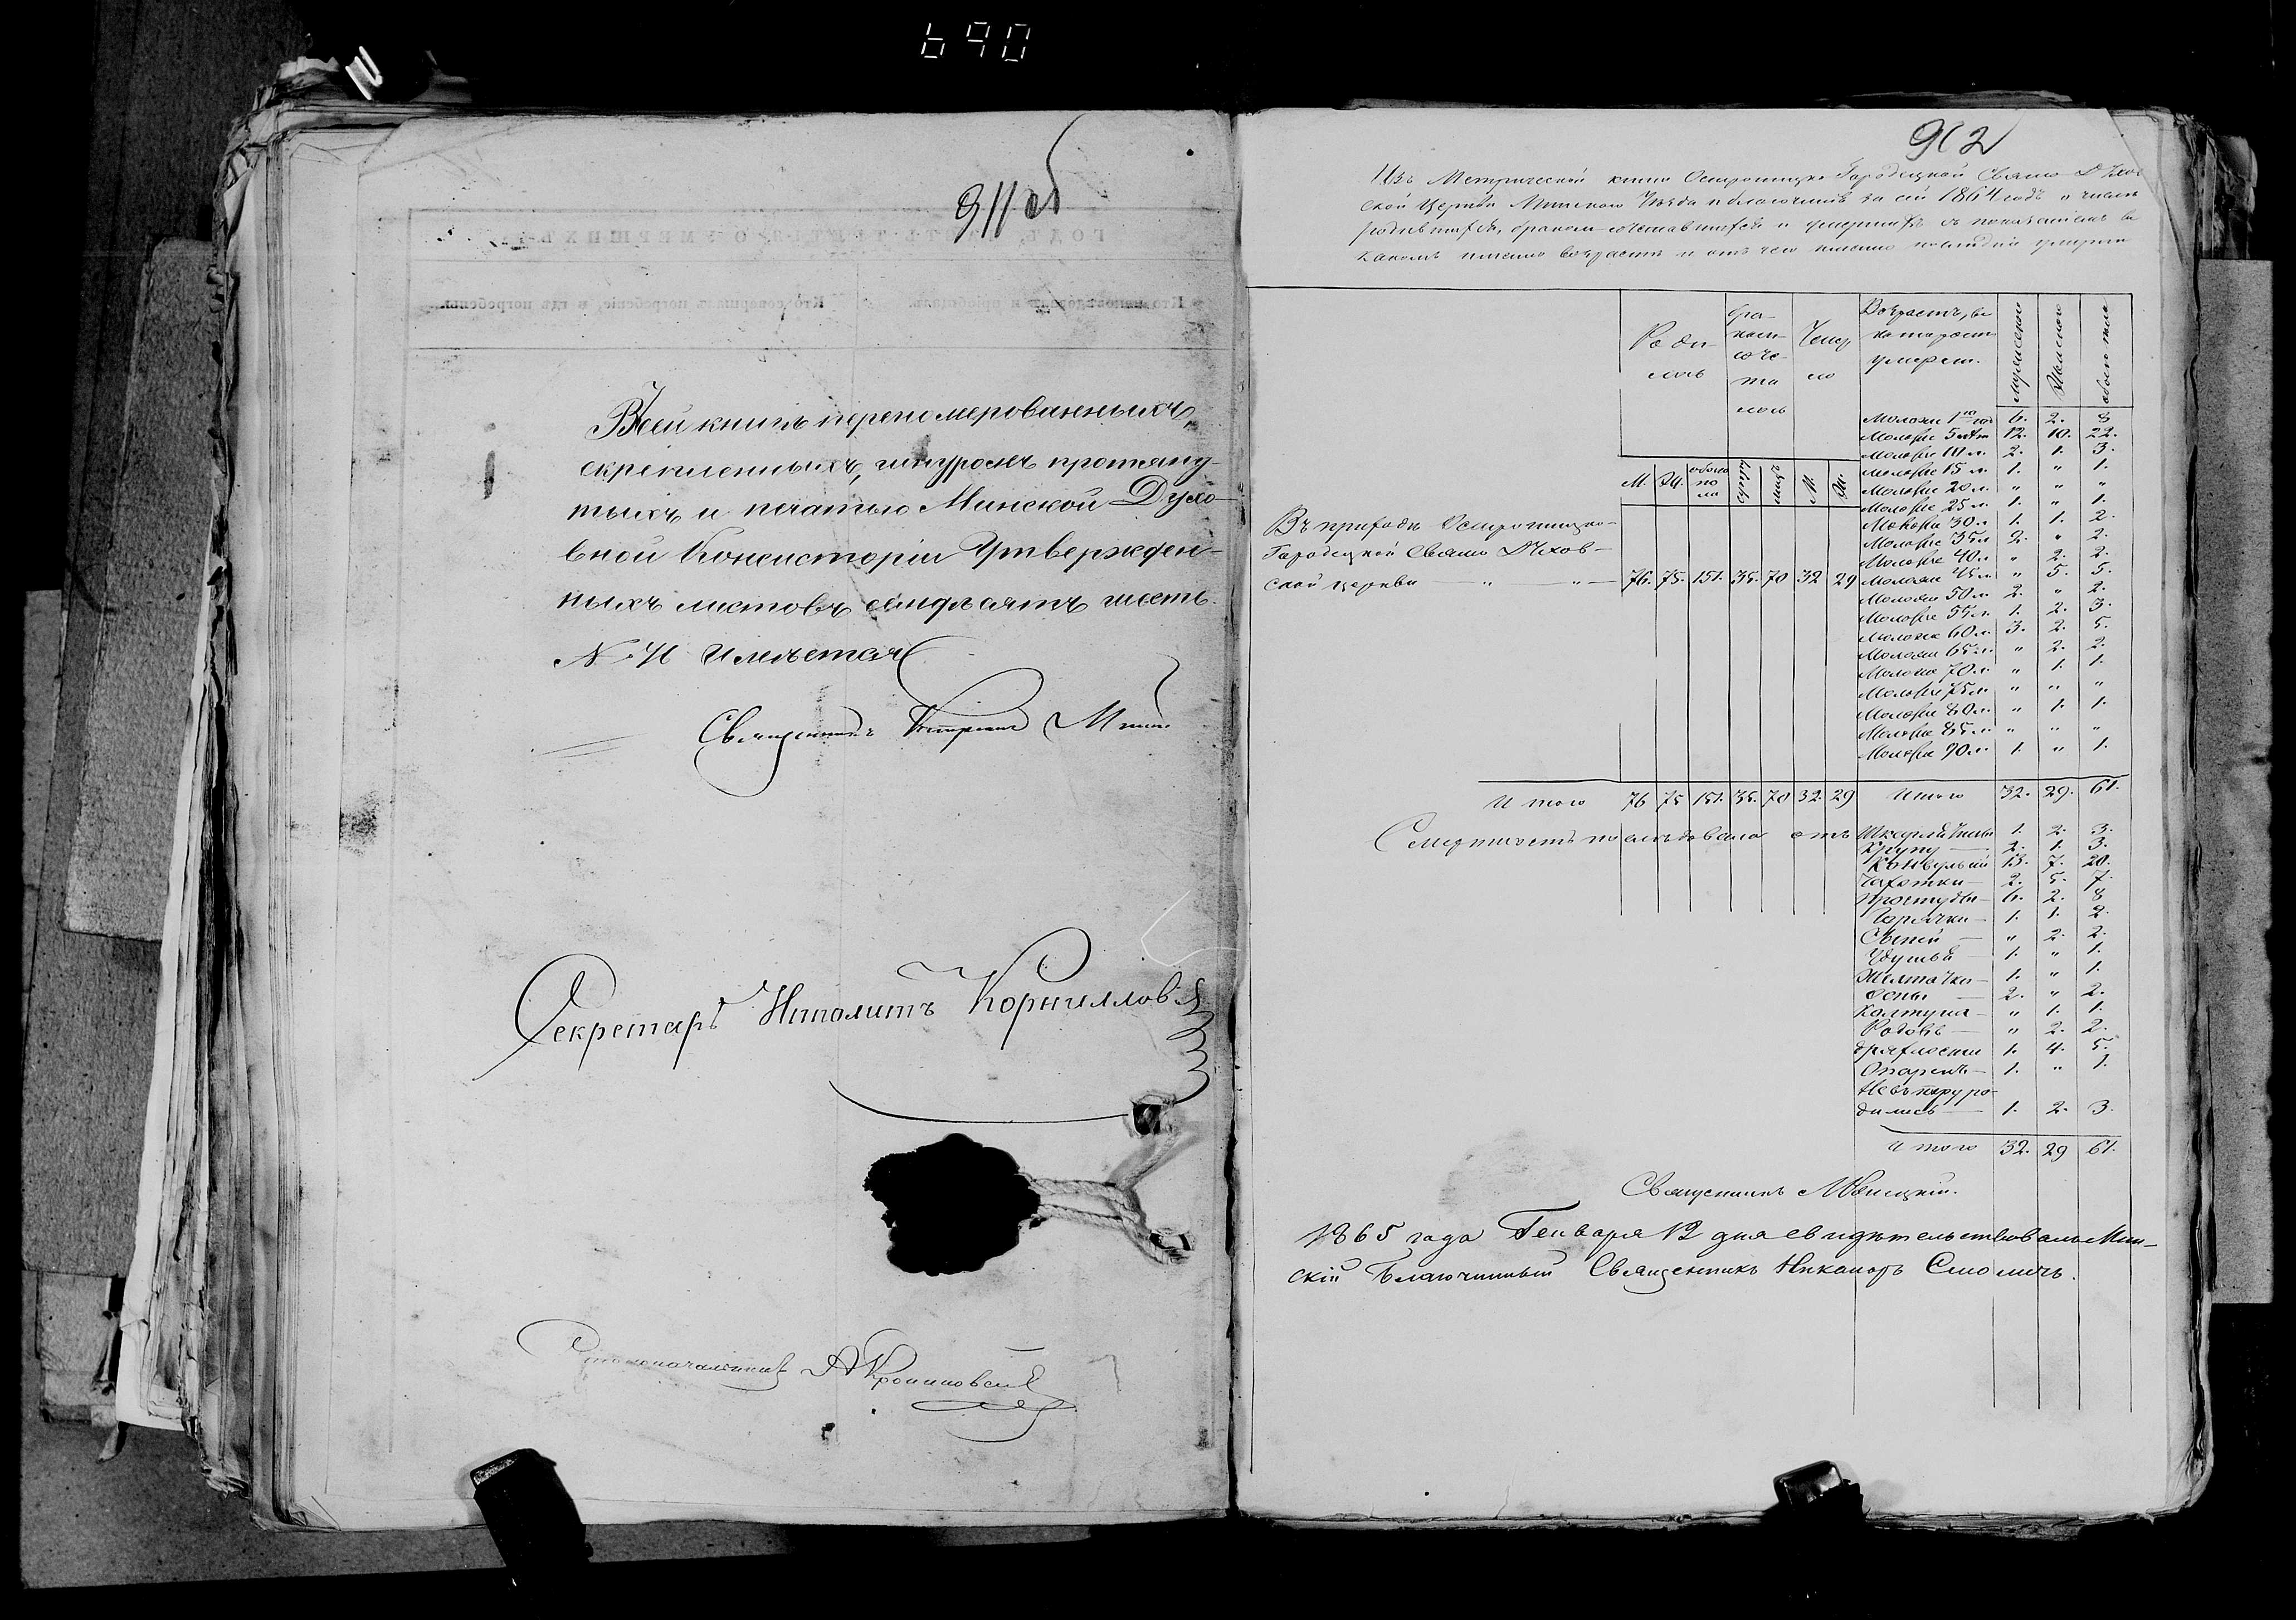 690
911 об
Всей книгѣ перепомерованныхъ,
скрѣпленныхъ, шнуромъ протяну-
тыхъ и печатью Минской Духо-
вной Консисторіи Утвержден-
ныхъ листовъ семдѣсятъ шесть.
№ 76 Имѣется
Священникъ
Секретарь Иполитъ Корнилловъ
Столоначальникъ
912
Изъ Метрической книги Острошицко Городецкой Свято Духов
ской Церкви Минскаго Уѣзда и благочинія за сей 1864 годъ о числѣ
родившихся, бракомъ сочетавшихся и умершихъ съ показаніемъ въ
какомъ именно возрастѣ и отъ чего именно послѣдніе умерли
Роди-
лось
Бра-
комъ
соче-
та
лось
Умер
ло
Возрастъ, въ
которомъ
умерли.
мужескаго
Женскаго
обоего пола
М. Ж. обоего по ла супр лицъ М. Ж.
Моложе 1го год 6. 2. 8
Моложе 5 лѣт 12. 10. 22.
Моложе 10 л. 2. 1. 3.
Моложе 15 л. 1. " 1.
Моложе 20 л. " " "
Моложе 25 л. 1. " 1.
Моложе 30 л. 1. 1. 2.
Моложе 35 л. 2. " 2.
Моложе 40 л. " 2. 2.
Въ приходѣ Острошицко-
Городецкой Свято Духов-
ской церкви — " — " — 76. 75. 151. 35. 70 32 29
Моложе 45 л. " 5. 5.
Моложе 50 л. 2. " 2.
Моложе 55 л. 1. 2. 3.
Моложе 60 л. 3. 2. 5.
Моложе 65 л. " 2. 2.
Моложе 70 л. " 1. 1.
Моложе 75 л. " " "
Моложе 80 л. " 1. 1.
Моложе 85 л. " " "
Моложе 90 л. 1. " 1.
Итого 76 75 151. 35. 70 32. 29 Итого 32. 29. 61.
Смертность послѣдовала отъ Шкарлатины 1. 2. 3.
Крупу — 2. 1. 3.
Конвульсій 13. 7. 20.
Чахотки — 2. 5. 7.
Простуды — 6. 2. 8
Горячки — 1. 1. 2.
Сыпи — " 2. 2.
Удушья 1. " 1.
Желтачка — 1. " 1.
Оспы — 2. " 2.
Колтуна — " 1. 1.
Родовъ — " 2. 2.
дряхлости 1. 4. 5.
Опаренъ — 1. " 1.
Не въ пору ро-
дились — 1. 2. 3.
Итого 32. 29 61.
Священникъ
1865 года Генваря 12 дня свидѣтельствовалъ Мин-
скій Благочинный Священникъ Никаноръ Смоличъ.